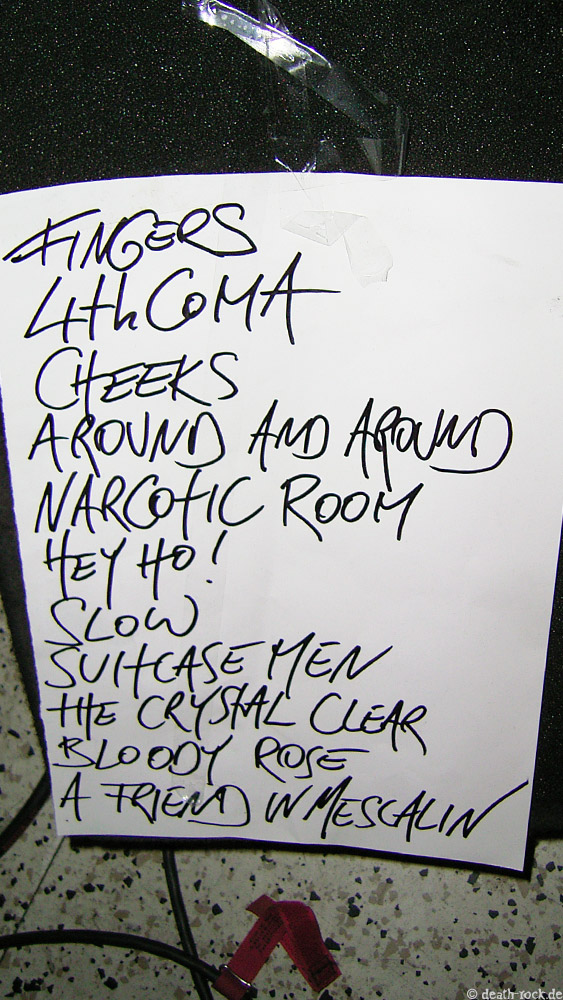 FINGERS
4th COMA
CHEEKS
AROUND AND AROUND
NARCOTIC ROOM
HEY HO!
SLOW
SUITCASE MEN
THE CRYSTAL CLEAR
BLOODY ROSE
A FRIEND IN MESCALIN
© death-rock.de